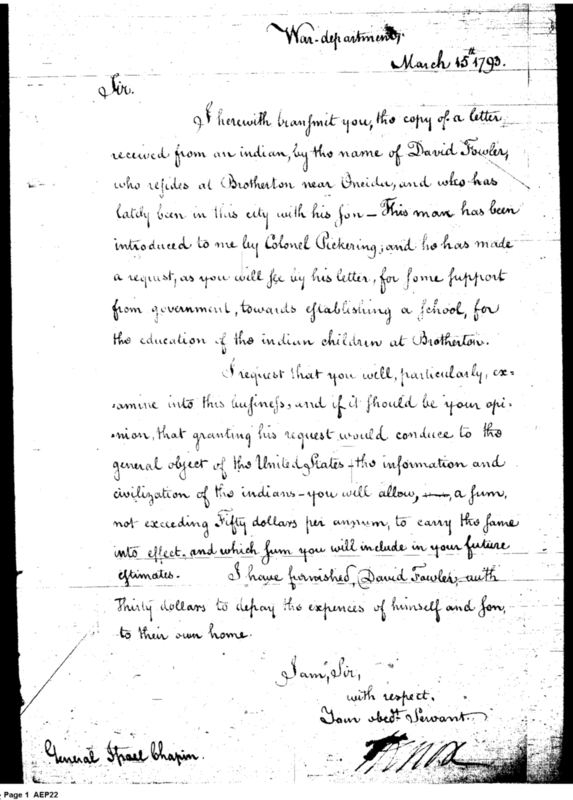 War-department,
March 15th 1793.
Sir.
I herewith transmit you, the copy of a letter
received from an indian, by the name of David Fowler,
who resides at Brotherton near Oneida, and who has
lately been in this city with his son – This man has been
introduced to me by Colonel Pickering; and he has made
a request, as you will see by his letter, for some support
from government, towards establishing a school, for
the education of the indian children at Brotherton.
I request that you will, particularly, ex-
-amine into this business, and if it should be your opi-
-nion, that granting his request would conduce to the
general object of the United States – the information and
civilization of the indians – you will allow, a sum,
not exceeding Fifty dollars per annum, to carry the same
into effect, and which sum you will include in your future
estimates. I have furnished, David Fowler, with
Thirty dollars to defray the expences of himself and son,
to their own home.
I am, Sir,
with respect.
Your obedt. Servant
H Knox
General Israel Chapin.
Page 1 AEP22